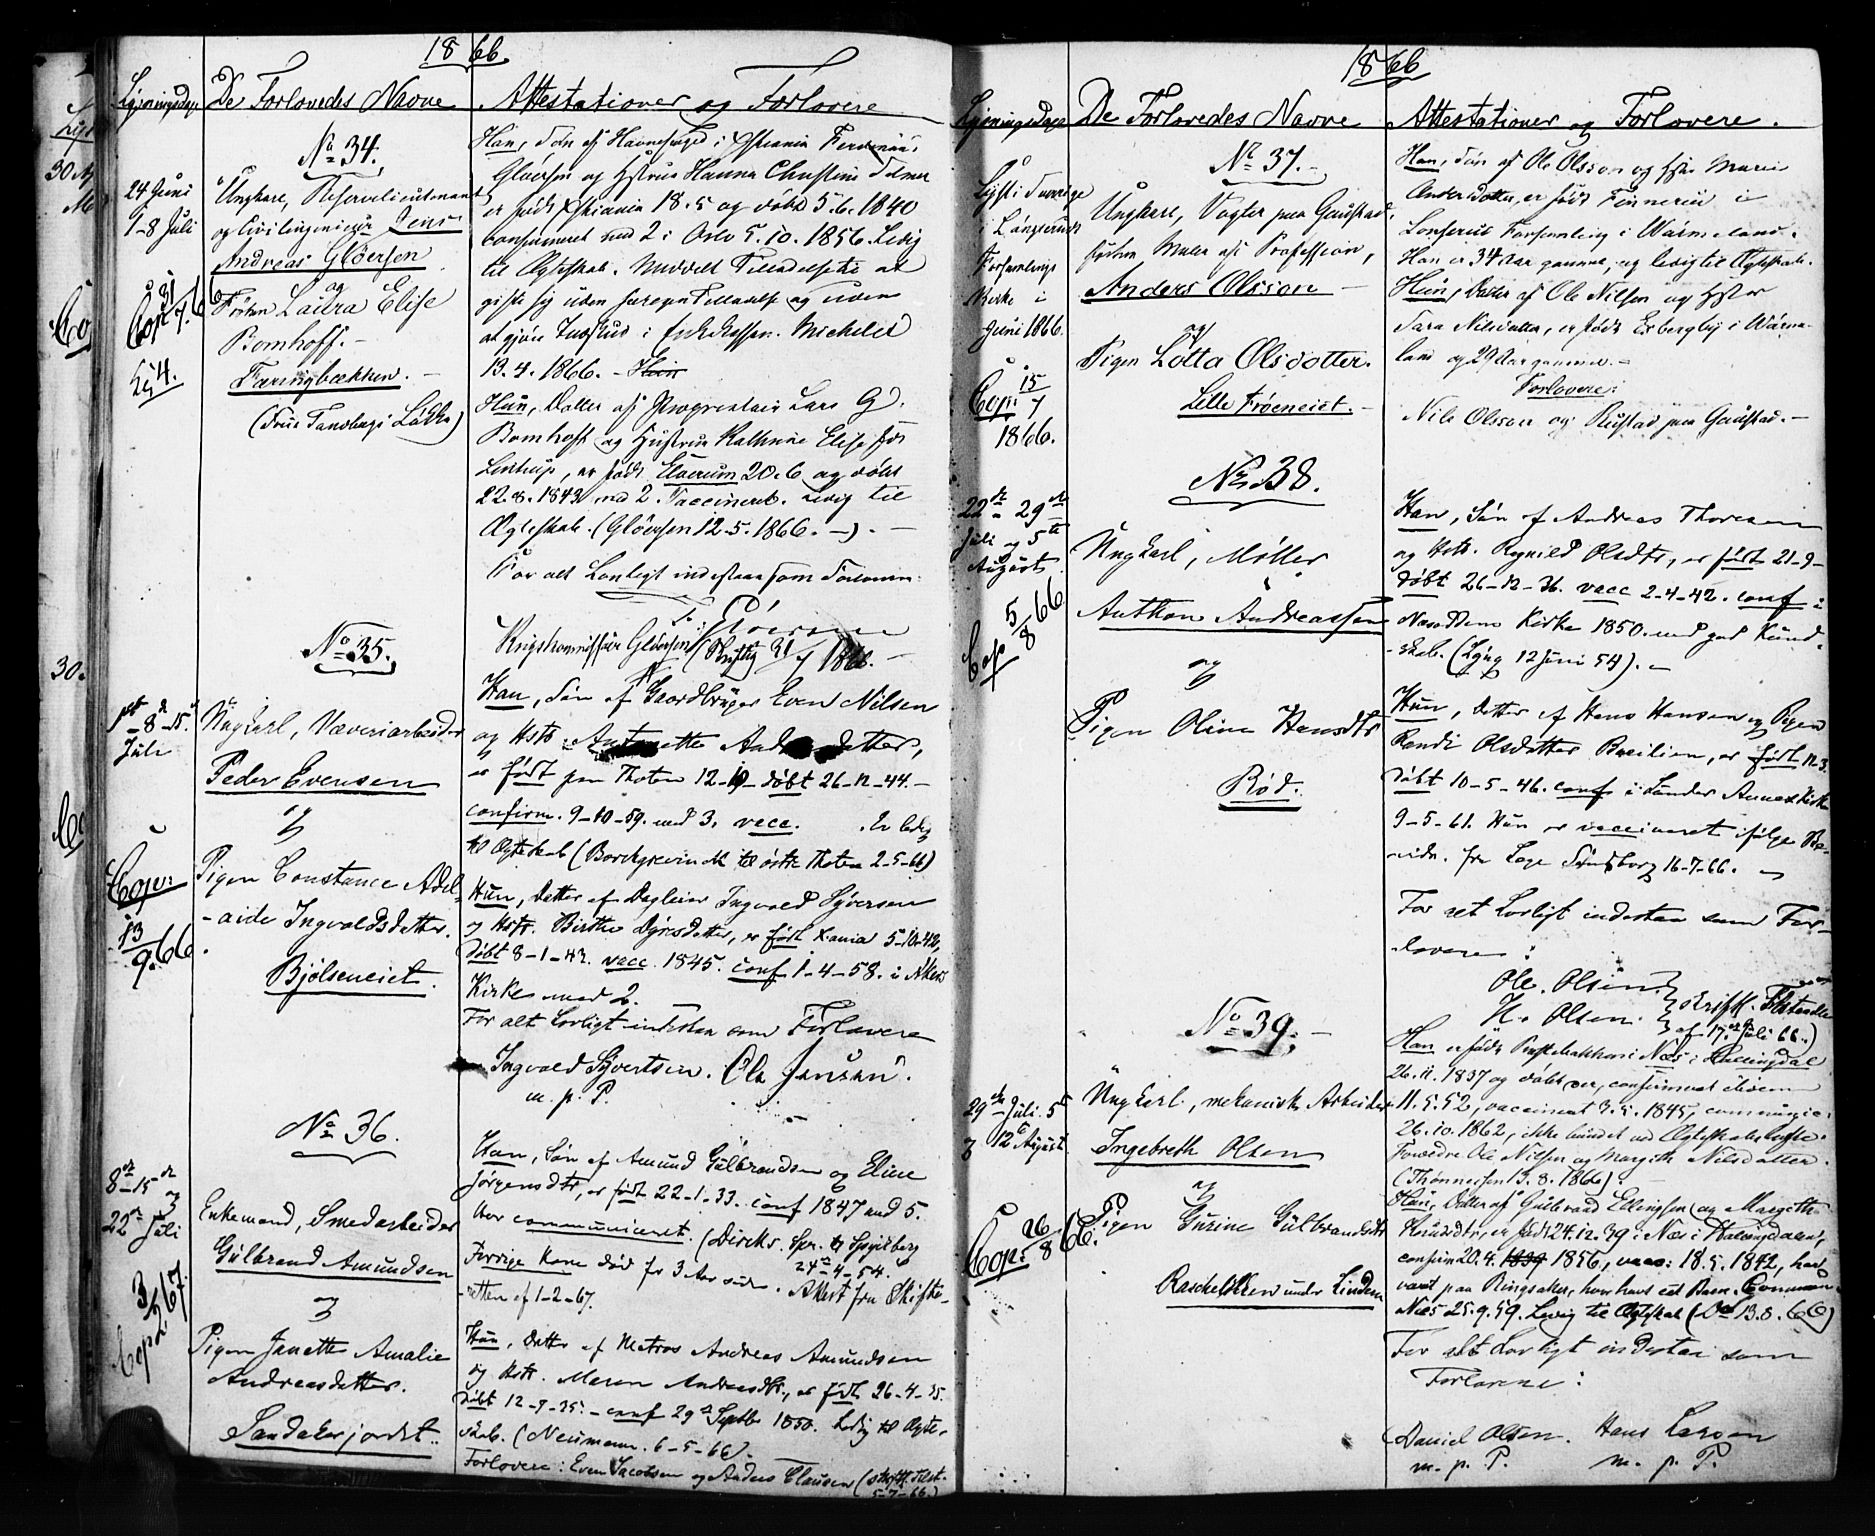 1866
Lysningsdage
De Forlovedes Navne
Attestationer og Forlovere
No 34.
24 Juni
1-8 Juli
Cop 31/7.66
Ungkarl, Reservelieutenant
og Civilingeniør Jens
Andreas Glöersen
og
Frøken Laura Elise
Bomhoff.
Faringbækken.
(Frue Tandbergs Løkke)
Han, Søn af Havnefoged i Xstiania Ferdinand
Glöersen og Hustru Hanna Christine
er født i Xstiania 18.5 og døbt 5.6.1840
confirmeret med 2 i Oslo 5.10.1856. Ledig
til Ægteskab. Meddelt Tilladelse til at
gifte sig uden Tilladelse og uden
at gjøre Indskud i Enkekassen. Michelet
13.4.1866. - Hun
Hun, Datter af Proprietair Lars G.
Bomhoff og Hustru Kathrine Elise født
er født Elverum 20.6 og døbt
22.8.1843 med 2. Vaccineret. Ledig til
Ægteskab. (Glöersen 12.5.1866. -).
For alt Lovligt indestaar som Forlovere
Glöersen
Krigskommissær Glöersen (Skriftlig 31/7 1866. -
No 35.
1st - 8de - 15de
Juli
Cop:
13/9.66
Ungkarl, Væveriarbeider
Peder Evensen
og
Pigen Constance Adel-
-aide Ingvaldsdatter.
Bjølseneiet.
Han, Søn af Gaardbruger Even Nilsen
og Hstr. datter,
er født paa Thoten døbt 26-12-44. -
confirm. 9-10-59. med 3. vacc. Er ledig
til Ægteskab (Borchgrevink til østre Thoten 2-5-66)
Hun, Datter af Dagleier Ingvald Syversen
og Hstr. Birthe datter, er født Xania 5-10-42,
døbt 8-1-43. vacc. 1845. conf 1-4-58. i Akers
Kirke med 2.
For alt Lovligt indestaa som Forlovere
Ingvald Syvertsen. Ole Jensen.
m. p. P.
No 36.
8de - 15de
og
22de Juli
Cop 3/2 67.
Enkemand, Smedarbeider
Gulbrand Amundsen
og
Pigen Janette Amalie
Andreasdatter.
Sandakerjordet.
Han, Søn af Amund Gulbrandsen og Eline
Jørgensdtr, er født 22-1-33. conf 1847 med 5.
har communiceret. (Dircks. Spr. til
24de-4-54.
Forrige Kone død for 3 Aar siden. Attest fra Skifte-
-retten af 1-2-67.
Hun, Datter af Matros Andreas Amundsen
og Hstr. Maren Andreasdtr., er født 26-4-35.
døbt 12-7-35. - conf 29de Septbr 1850. Ledig til Ægte-
skab. (Neumann. 6-5-66).
Forlovere: Even Jacobsen og Anders Clausen (skriftl. Tilst.
5-7-66.)
1866
Lysningsdage
De Forlovedes Navne
Attestationer og Forlovere.
No 37.
Lyst i Sverrige
i Långserud
Forsamlings
Kirke i
Juni 1866.
Cop. 15/7
1866.
Ungkarl, Vogter paa Gaustad,
Maler af Profession,
Anders Olsson
og
Pigen Lotta Olsdotter.
Lille Frøeneiet.
Han, Søn af Ole Olsson og Hstr Maria
Andersdotter, er født i
Forsamling i Wärmeland.
Han er 34 Aar gammel, og ledig til Ægteskab.
Hun, Datter af Ole Nilsen og Hstr
Sara Nilsdotter, er født i Wärme-
land og 29 Aar gammel. -
Forlovere:
Nils Olsson og Rustad paa Gaustad. -
No 38.
22de - 29de
Juli og 5te
Augusts
Cop 5/8 66
Ungkarl, Møller
Anthon Andreassen
og
Pigen Oline Hansdtr
Rød.
Han, Søn af Andreas Thoresen
og Hstr. Ragnild Olsdtr, er født 21-9-
døbt 26-12-36. vacc 2-4-42. conf i
Nesoddens Kirke 1850. med god Kund-
-skab. (Lyng 12 Juni 54). -
Hun, Datter af Hans Hansen og Pigen
Randi Olsdatter Brasilien, er født 12-3.
døbt 10-5-46. conf i Sander Annex Kirke
9-5-61. Hun er vaccineret ifølge Be-
vidn. fra Læge 16-7-66. -
For alt Lovligt indestaa som For-
lovere:
Ole. Olsen.
H. Olsen.
skriftl. Tilstaaelse
af 17de Juli 66.)
No 39.
29de Juli. 5te
og 12te August
Cop: 26/8 66.
Ungkarl, mekanisk Arbeider
Ingebreth Olsen
og
Pigen Gurine Gulbrandsdtr
Rascheløkken under Lindern
Han er født i Næs i Hallingdal
26.11.1837 og døbt, confirmeret
11.5.52, vaccineret 3.5.1845, communic:
26.10.1862, ikke bundet ved Ægteskabsløfte.
Forældre Ole Nilsen og Margith Nilsdatter.
(Thønnessen 13.8.1866).
Hun, Datter af Gulbrand Ellingsen og Margith
Knudsdtr, er født 24.12.39 i Næs i Hallingdalen,
confirm 20.4. 1839 1856, vacc: 18.5.1842, har
været paa Ringsaker, hvor havt et Barn. Commun
Næs 25.9.59. Ledig til Ægteskab (Do 13.8.66)
For alt Lovligt indestaa som
Forlovere:
Daniel Olsen. Hans Larsen
m. p. P. m. p. P.